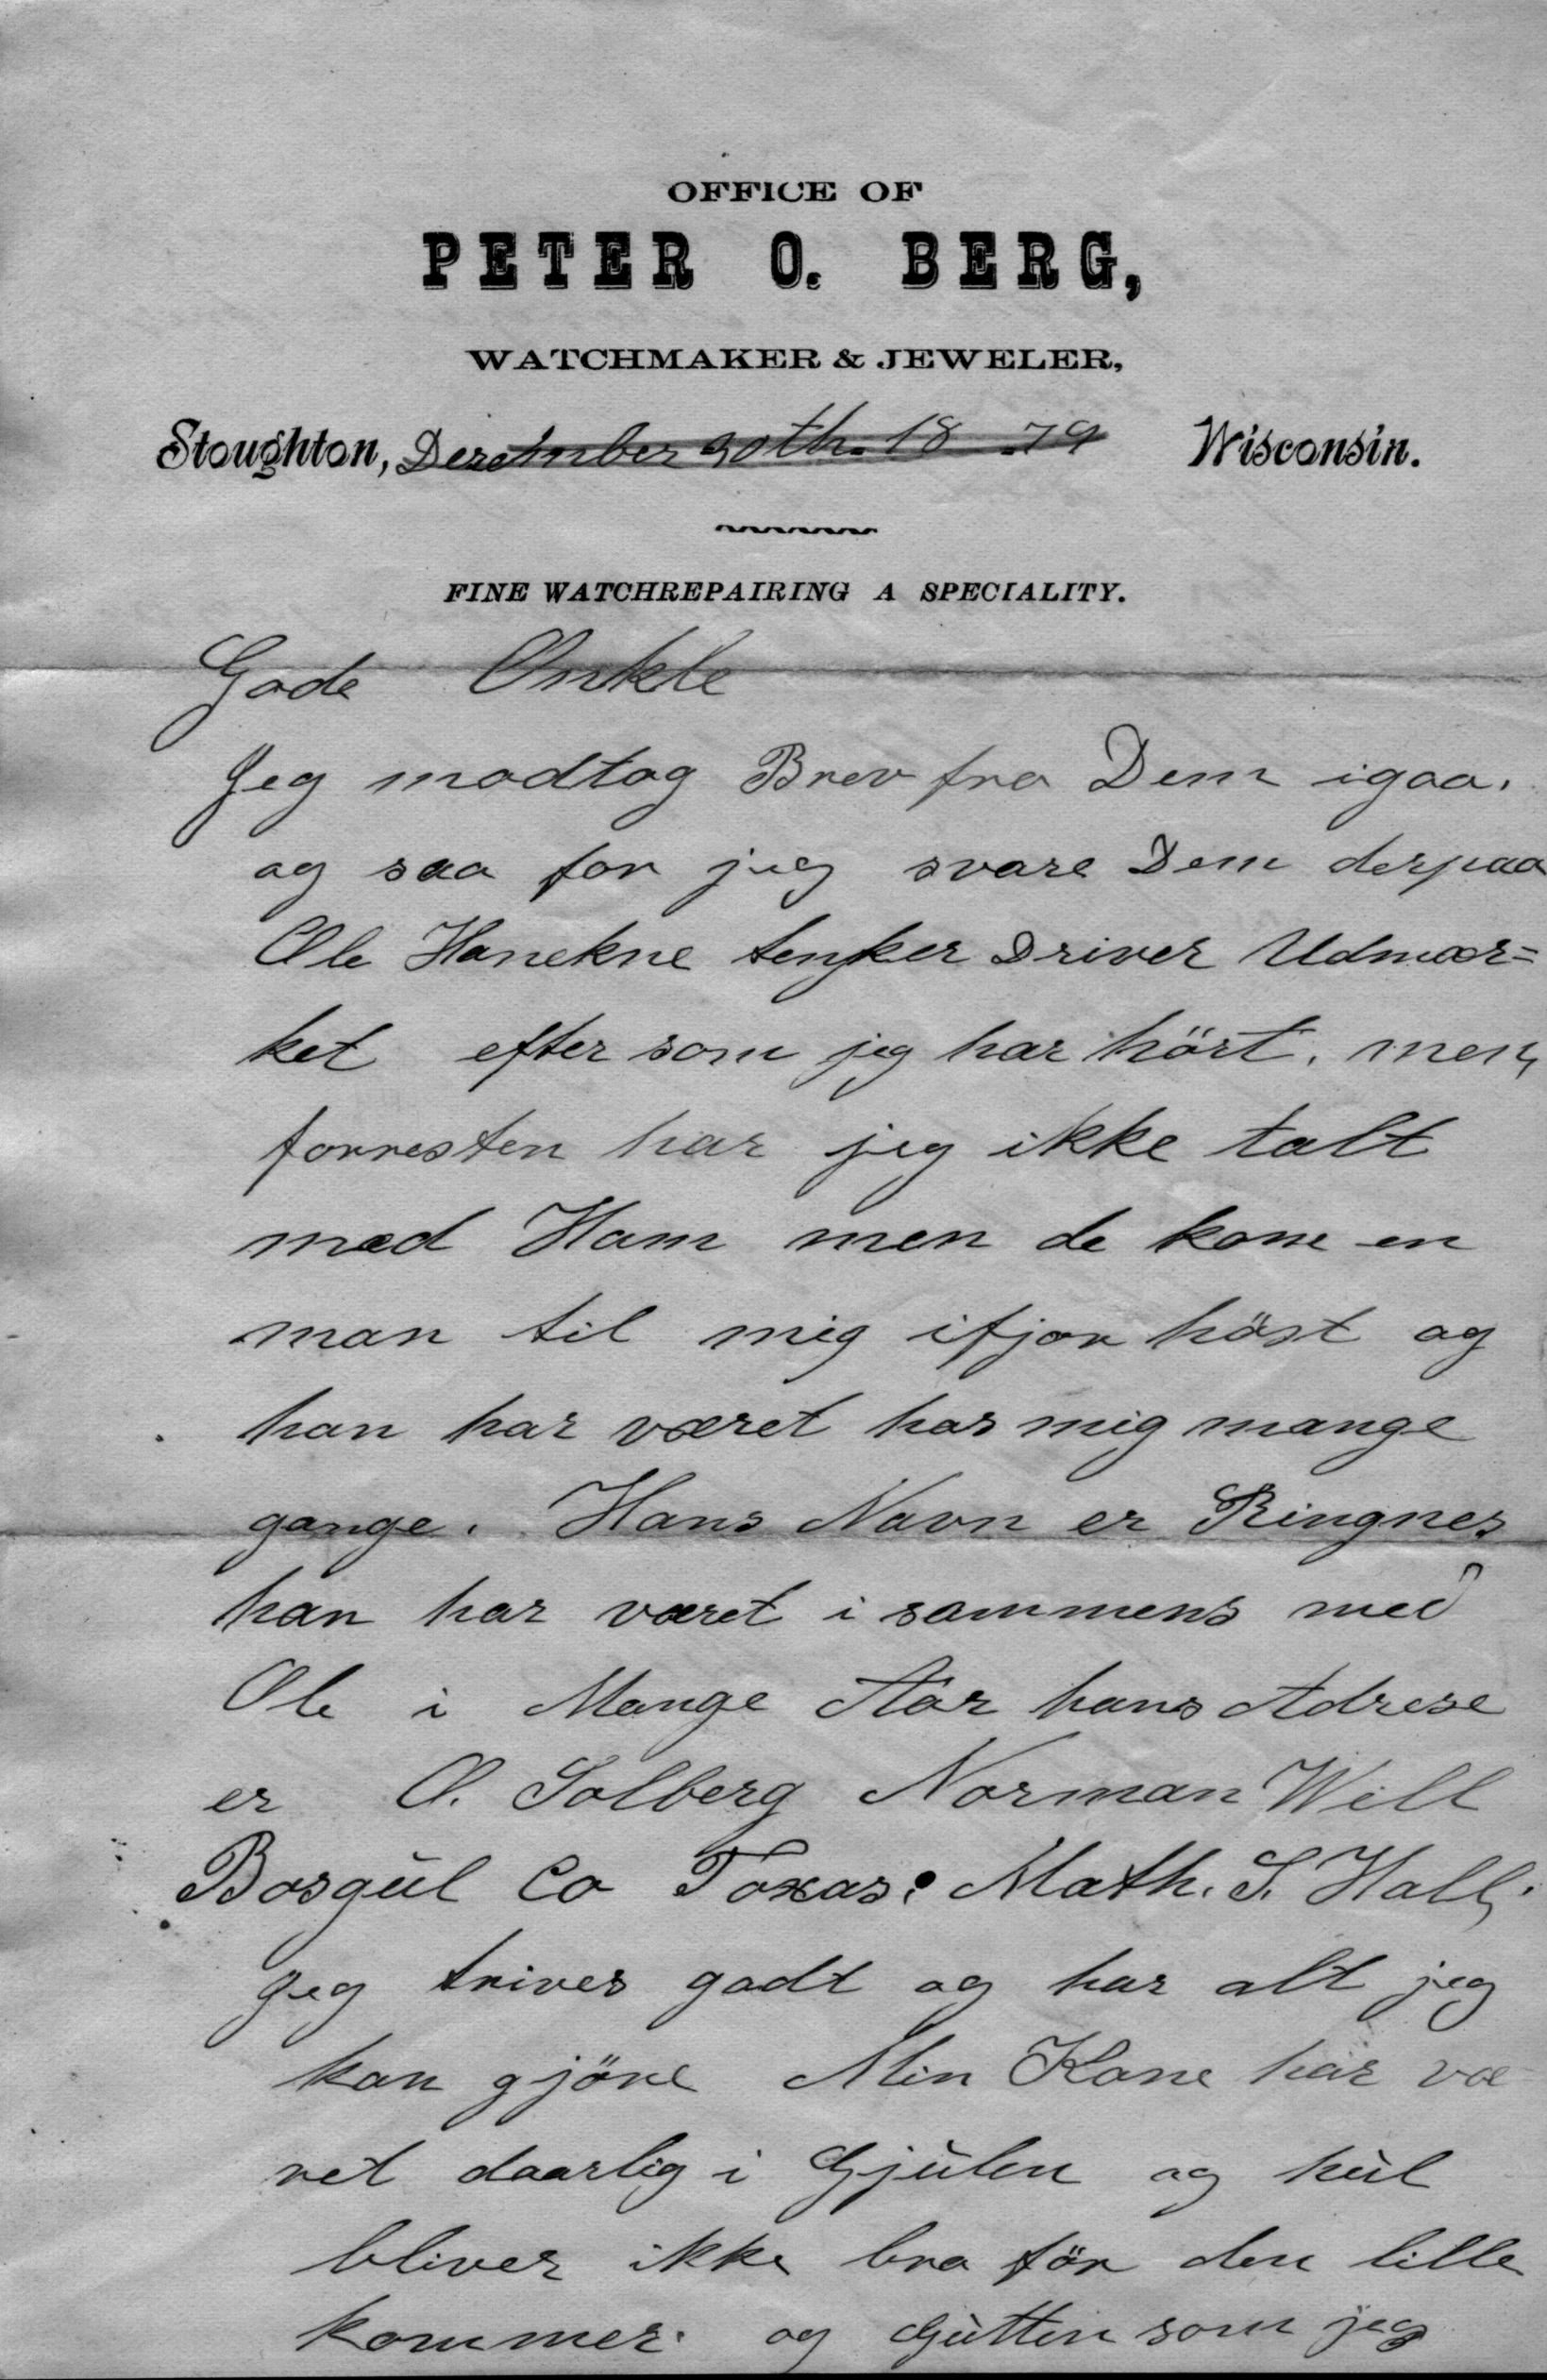 OFFICE OF
PETER O. BERG,
WATCHMAKER & JEWELER,
Stoughton, December 30th. 18 79 Wisconsin.
FINE WATCHREPAIRING A SPECIALITY.
Gode Onkle
Jeg modtog Brev fra Dem igaa.
og saa for jeg svare Dem derpaa
Ole Hanekne tenker Driver Udmær=
ket efter som jeg har hört. men
forresten har jeg ikke talt
med Ham men de kom en
man til mig ifjor höst og
han har været hos mig mange
gange. Hans Navn er Ringnes
han har været i sammens med
Ole i Mange Aar hans Adrese
er O. Solberg Norman Will
Bosqùl Co Texas: Math. S. Hall,
Jeg trives godt og har alt jeg
kan gjöre Min Kone har væ
ret daarlig i Gjùlen og hùl
bliver ikke bra för den lille
kommer. og Gùtten som jeg